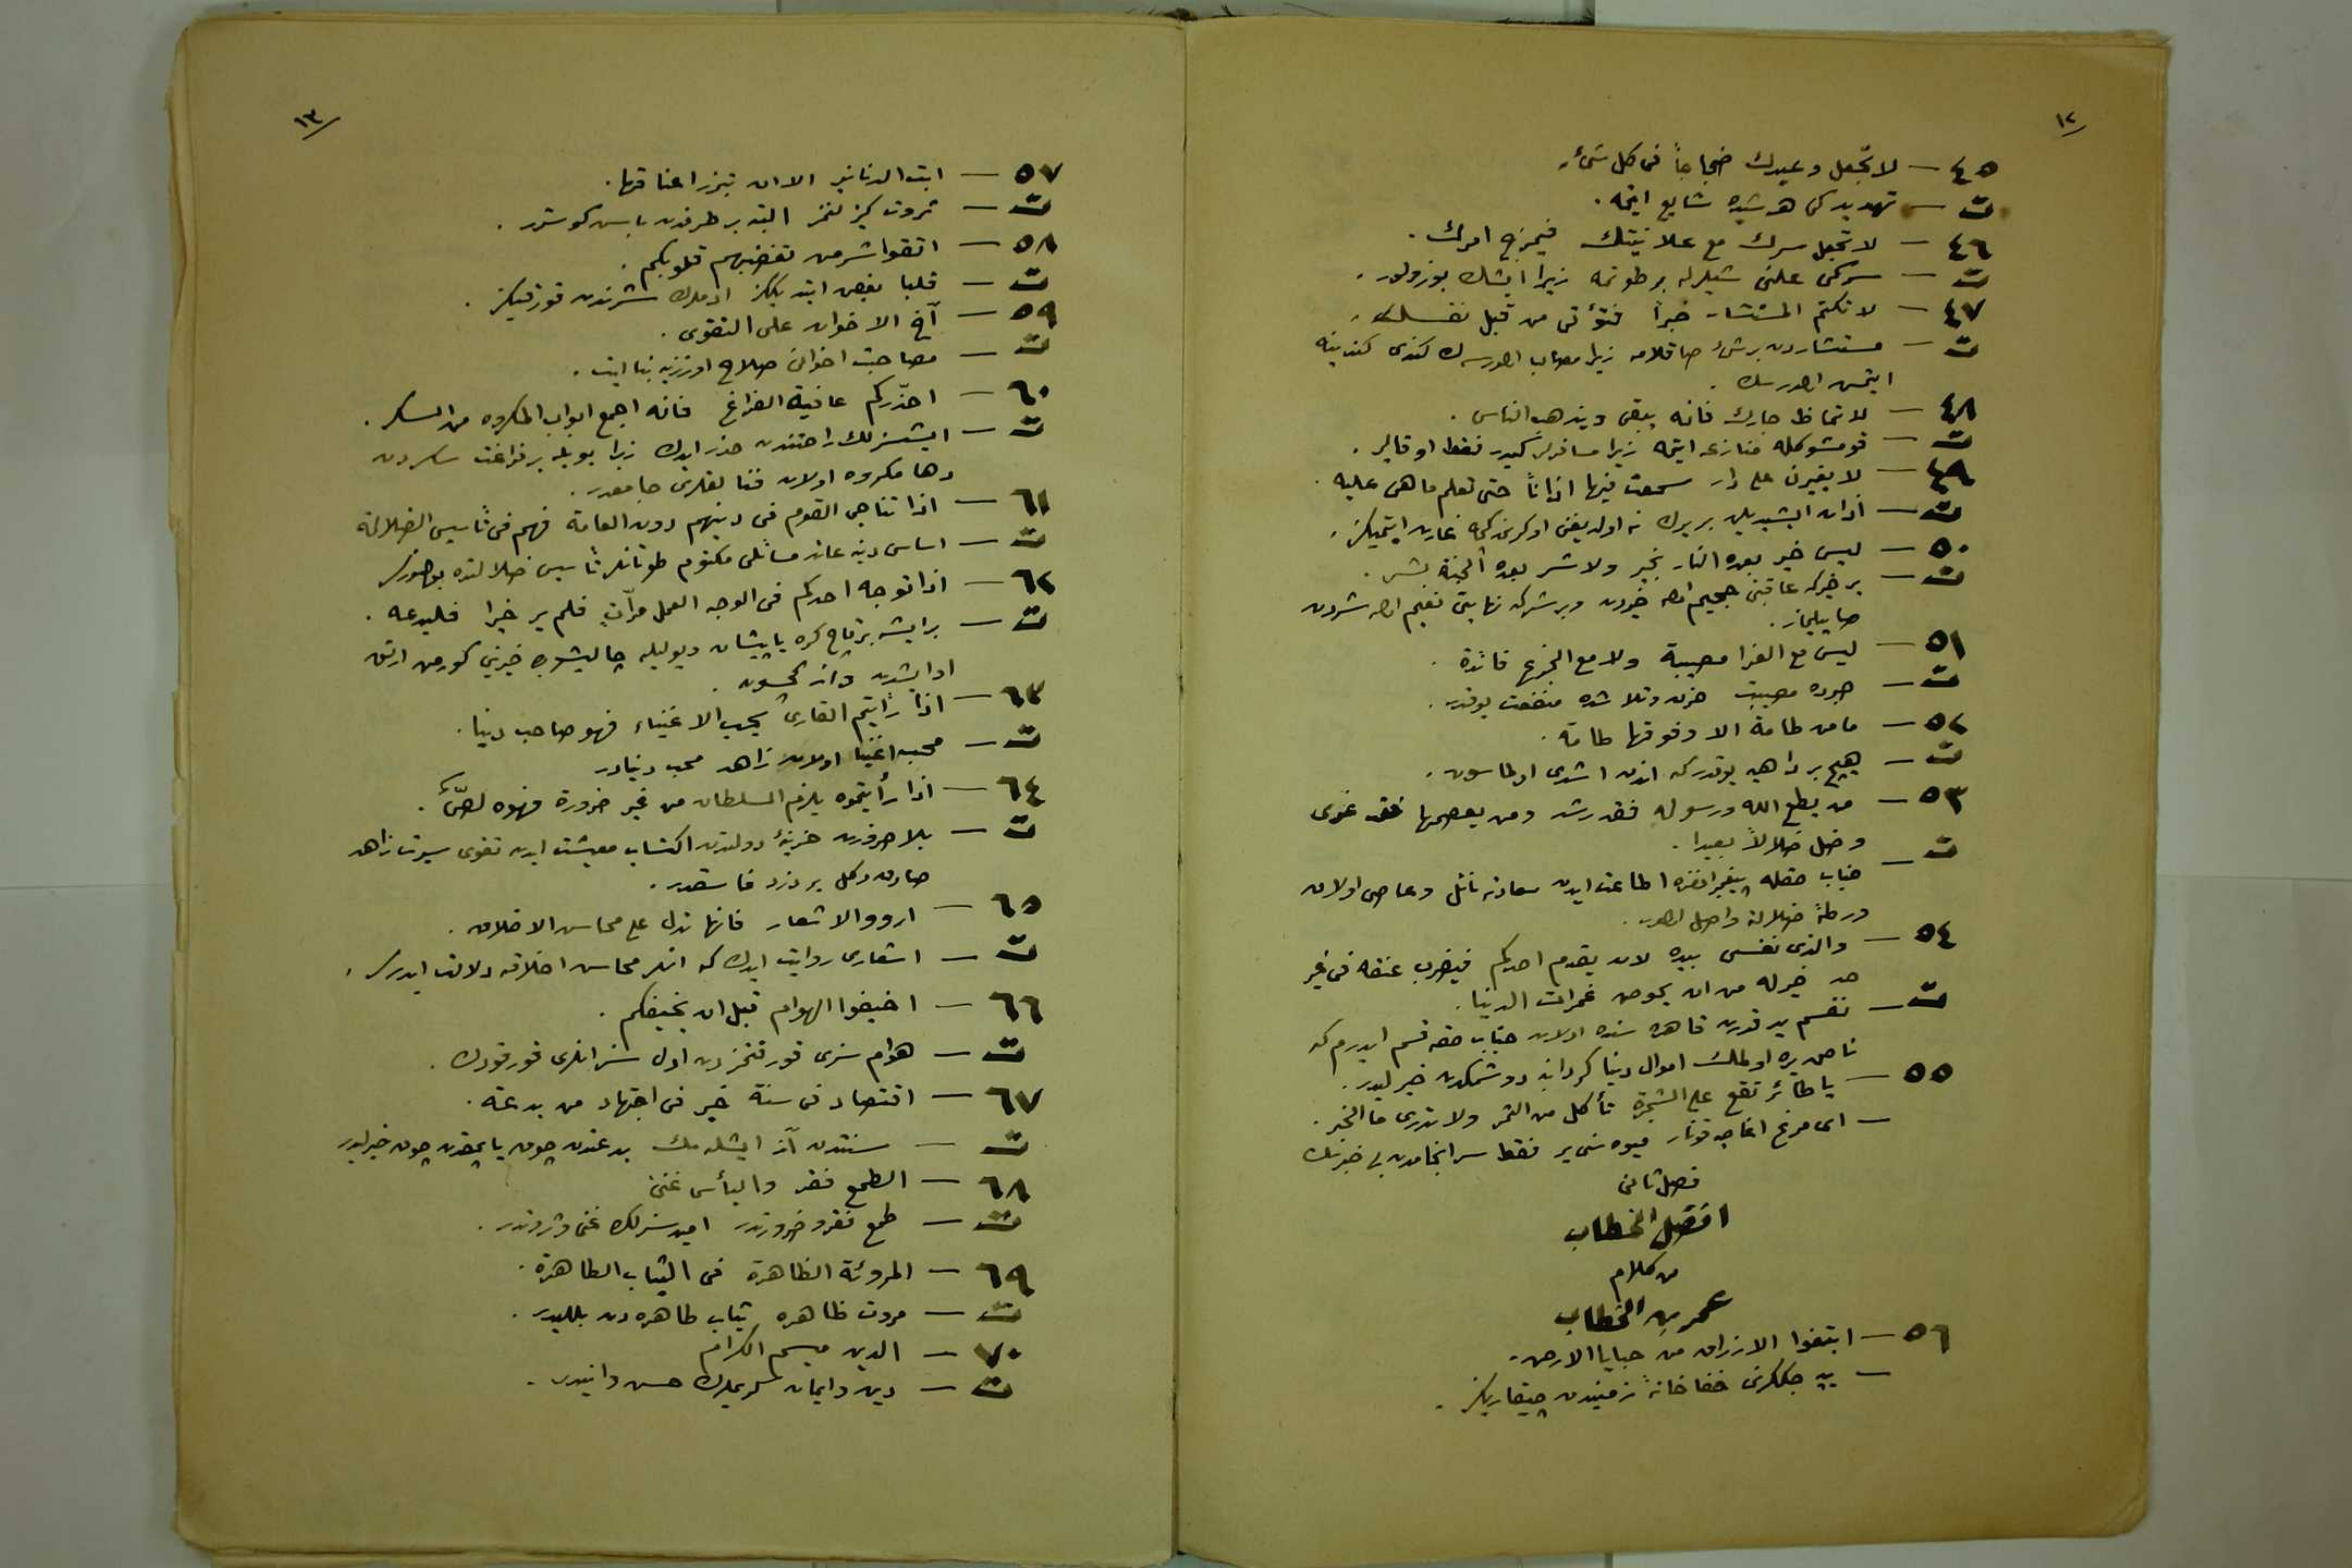 ١٢
٤٥ — لا تجعل وعيدك ضجاجاً فى كل شىء.
ت — تهديدكى هر شيده شايع ايتمه.
٤٦ — لا تجعل سرك مع علانيتك فيمزج امرك.
ت — سركى علنى شيلرله بر طوتمه زيرا ايشك بوزولور.
٤٧ — لا تكتم المستشار خبراً فتؤتى من قبل نفسك.
ت — مستشاردن برشى صاقلامه زيرا مصاب اولورسه ك كندى كندينه
ايتمش اولورسك.
٤٨ — لا تماظ جارك فانه يبقى ويذهب الناس.
ت — قومشوكله منازعه ايتمه زيرا مسافرلر كيدر فقط او قالير.
٤٩ — لا يغيرن على دار سمعت فيها اذاناً حتى تعلم ما هى عليه.
ت — اذان ايشيديلن بر يرك نه اولديغنى اوكرنمدكجه غارت ايتميكز.
٥٠ — ليس خير بعده النار بخير ولا شر بعده الجنة بشر.
ت — بر خيركه عاقبتى جحيم اوله خيردن وبر شركه نهايتى نعيم اوله شردن
صاييلماز.
٥١ — ليس مع العزا مصيبة ولا مع الجزع فائدة.
ت — صبرده مصيبت حزن وتلاشده منفعت يوقدر.
٥٢ — ما من طامة الا وفوقها طامة.
ت — هيچ بر داهيه يوقدركه اندن اشدى اولماسون.
٥٣ — من يطع الله ورسوله فقد رشد ومن يعصهما فقد غوى
وضل ضلالاً بعيدا.
ت — جناب حقله پيغمبرانه اطاعت ايدن سعادته نائل وعاصى اولان
ورطهٔ ضلالته واصل اولور.
٥٤ — والذى نفسى بيده لان يقدم احدكم فيضرب عنقه فى غير
حد خير له من ان يخوض غمرات الدنيا.
ت — نفسم يد قدرت قاهره سنده اولان جناب حقه قسم ايدرم كه
ناحق يره اولمك اموال دنيا كردابنه دوشمكدن خيرليدر.
٥٥ — يا طائر تقع على الشجرة تأكل من الثمر ولا تدرى ما الخبر.
— اى مرغ اغاجه قونار ميوه سنى ير فقط سرانجامدن بى خبرسك
فصل ثانى
افضل الخطاب
من كلام
عمر بن الخطاب
٥٦ — ابتغوا الارزاق من خبايا الارض.
— ييه جككزى خفاخانهٔ زميندن چيقاريكز.
١٣
٥٧ — ابت الدنانير الا ان تبرز اعناقها.
ت — ثروت كيزلنمز البته بر طرفدن باش كوسترر.
٥٨ — اتقوا شر من تبغضهم قلوبكم.
ت — قلبا بغض ايتديككز ادملرك شرندن قورقيكز.
٥٩ — آخ الاخوان على التقوى.
ت — مصاحبت اخوانى صلاح اوزرينه بنا ايت.
٦٠ — احذّركم عاقبة الفراغ فانه اجمع ابواب المكروه من السكر.
ت — ايشسزلك راحتندن حذر ايدك زيرا بويله بر فراغت سكردن
دها مكروه اولان فنالقلرى جامعدر.
٦١ — اذا تناجى القوم فى دينهم دون العامة فهم فى تأسيس الضلالة
ت — اساس دينه عائد مسائلى مكتوم طوتانلر تأسيس ضلالتده بولنورلر
٦٢ — اذا توجه احدكم فى الوجه العمل مرّات فلم ير خيرا فليدعه.
ت — بر ايشه برقاچ كره ياپيشان ويوليله چاليشوب خيرينى كورمين ارتق
او ايشدن واز كچسون.
٦٣ — اذا رأيتم القارئ يحب الاغنياء فهو صاحب دنيا.
ت — محب اغنيا اولان زاهد محب دنيادر
٦٤ — اذا رأيتموه يلزم السلطان من غير ضرورة فهو لصّ.
ت — بلا ضرورت خزينهٔ دولتدن اكتساب معيشت ايدن تقوى سيرت زاهد
صادق دكل بر دزد فاسقدر.
٦٥ — ارووا الاشعار فانها تدل على محاسن الاخلاق.
ت — اشعارى روايت ايدك كه انلر محاسن اخلاقه دلالت ايدرلر.
٦٦ — اخيفوا الهوام قبل ان يخيفكم.
ت — هوام سزى قورقتمزدن اول سز انلرى قورقودك.
٦٧ — اقتصاد فى سنة خير فى اجتهاد من بدعة.
ت — سنتدن آز ايشله مك بدعتدن چوق ياپمقدن چوق خيرليدر
٦٨ — الطمع فقر واليأس غنى
ت — طمع فقر وضرورتدر اميدسزلك غنى وثروتدر.
٦٩ — المروئة الظاهرة فى الثياب الطاهرة.
ت — مروت ظاهره ثياب طاهره دن بللیدر.
٧٠ — الدين ميسم الكرام
ت — دين وايمان كريملرك حسن وانيدر.